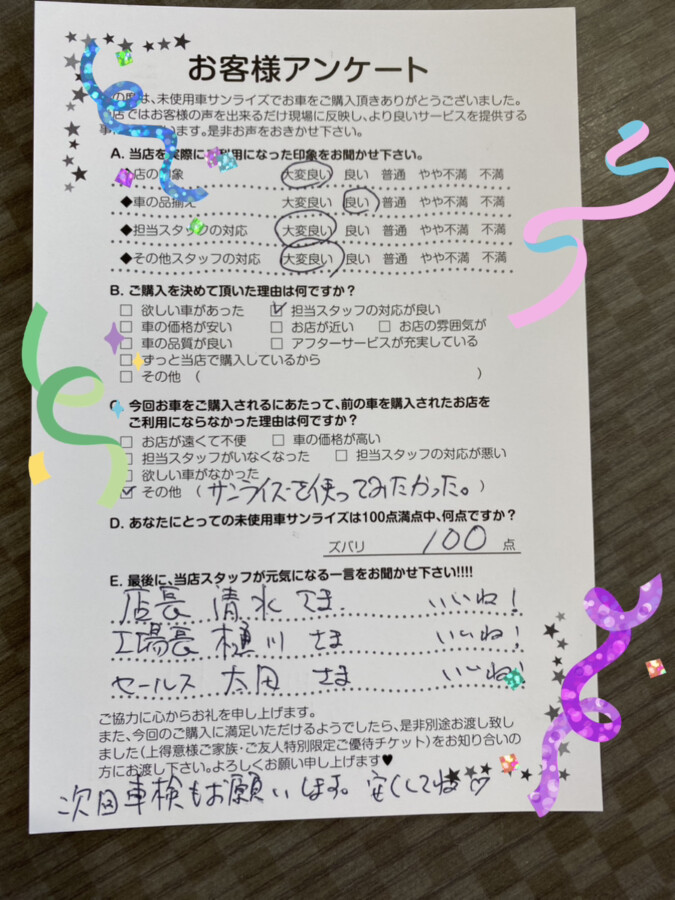 お客様アンケート
の度は、未使用車サンライズでお車をご購入頂きありがとうございました。
店ではお客様の声を出来るだけ現場に反映し、より良いサービスを提供する
ます。是非お声をおきかせ下さい。
A. 当店を実際にご利用になった印象をお聞かせ下さい。
◆店の印象 大変良い 良い 普通 やや不満 不満
◆車の品揃え 大変良い 良い 普通 やや不満 不満
◆担当スタッフの対応 大変良い 良い 普通 やや不満 不満
◆その他スタッフの対応 大変良い 良い 普通 やや不満 不満
B. ご購入を決めて頂いた理由は何ですか?
□ 欲しい車があった ☑ 担当スタッフの対応が良い
□ 車の価格が安い □ お店が近い □ お店の雰囲気が
□ 車の品質が良い □ アフターサービスが充実している
□ ずっと当店で購入しているから
□ その他 ( )
C. 今回お車をご購入されるにあたって、前の車を購入されたお店を
ご利用にならなかった理由は何ですか?
□ お店が遠くて不便 □ 車の価格が高い
□ 担当スタッフがいなくなった □ 担当スタッフの対応が悪い
□ 欲しい車がなかった
☑ その他 ( サンライズを使ってみたかった。 )
D. あなたにとっての未使用車サンライズは100点満点中、何点ですか?
ズバリ 100 点
E. 最後に、当店スタッフが元気になる一言をお聞かせ下さい!!!!
店長 清水 さま いいね!
工場長 樋川 さま いいね!
セールス 太田 さま いいね!
ご協力に心からお礼を申し上げます。
また、今回のご購入に満足いただけるようでしたら、是非別途お渡し致し
ました(上得意様ご家族・ご友人特別限定ご優待チケット)をお知り合いの
方にお渡し下さい。よろしくお願い申し上げます♥
次回車検もお願いします。安くしてね♡